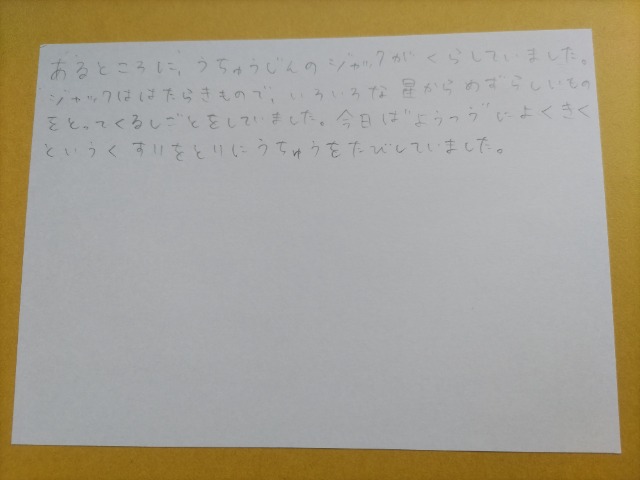 あるところに、うちゅうじんのジャックがくらしていました。
ジャックははたらきもので、いろいろな星からめずらしいもの
をとってくるしごとをしていました。今日は"ようつう"によくきく
というくすりをとりにうちゅうをたびしていました。